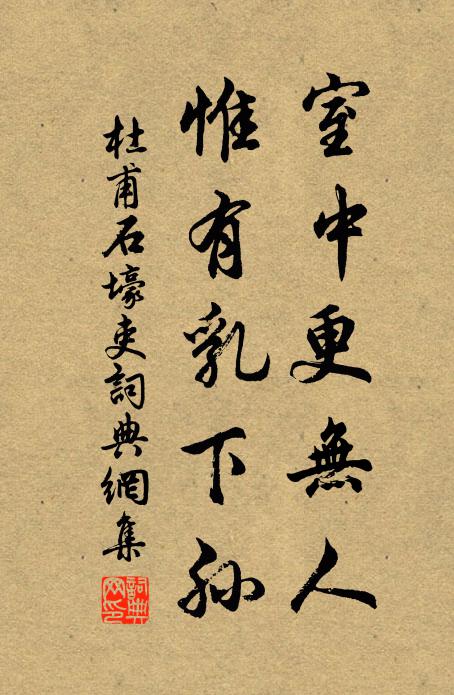 室中更無人
惟有乳下孙
杜甫石壕吏詞典網集
詞典網印